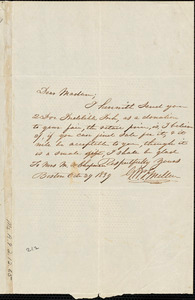 Dear Madam,
I herewith send you
2 Doz Indelible Ink, as a donation
to your fair, the retail price, is, I believe
if you can find sale for it, & it
will be acceptable to you, though it
is a small gift, I shall be glad
To Mrs M. W. Chapman Respectfully Yours
Boston Oct 29 1839
212